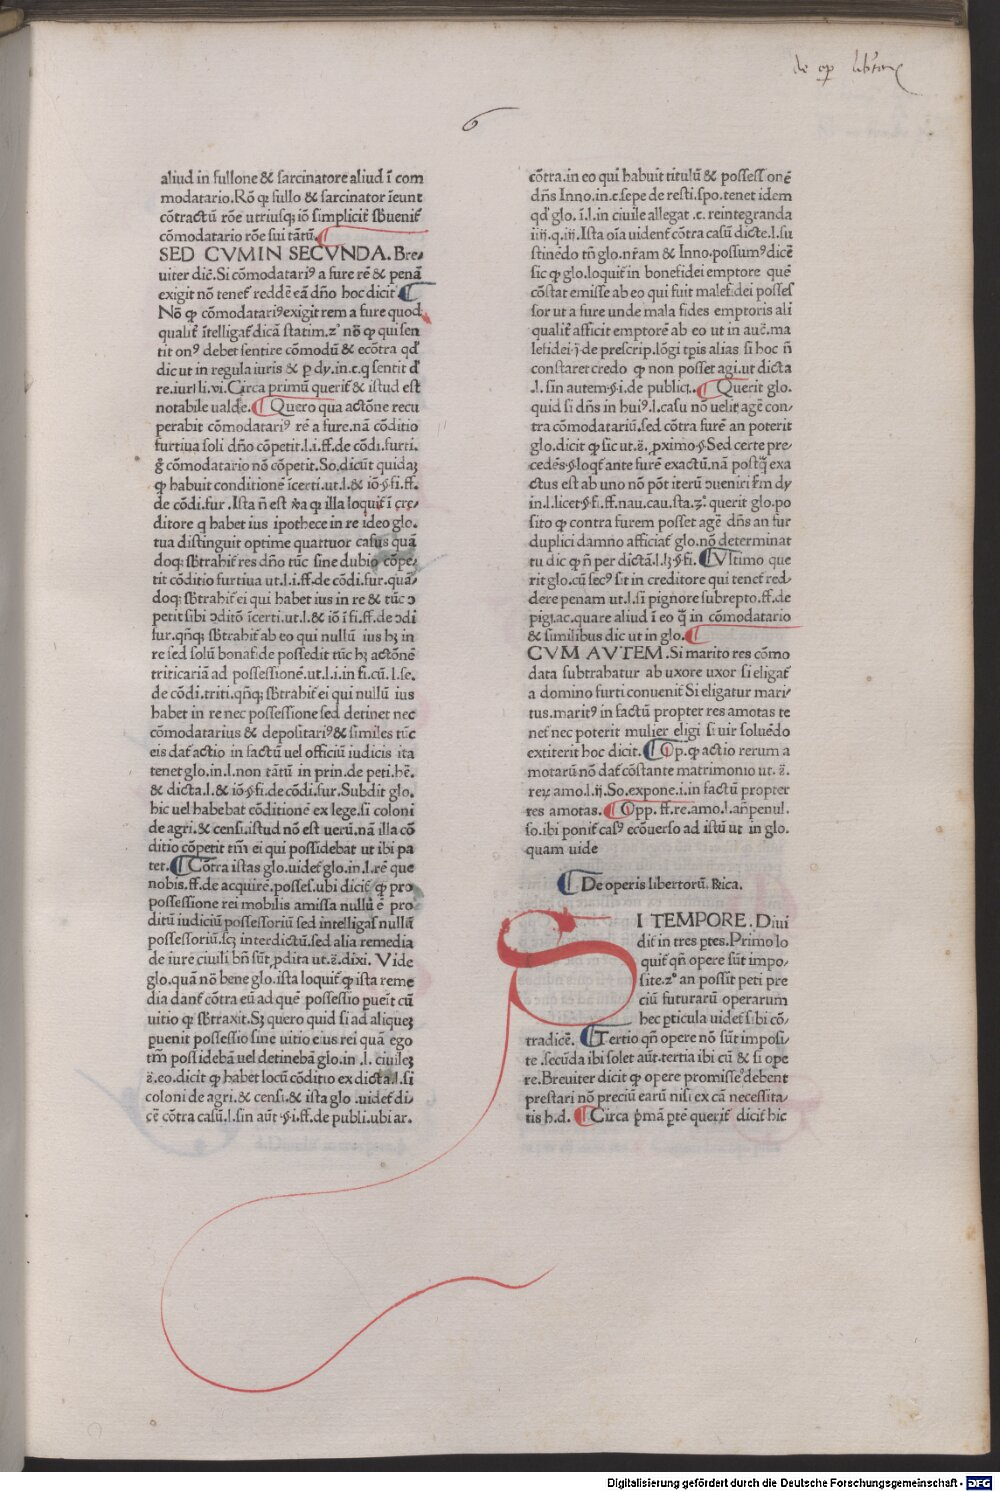 de op libertorum
6
aliud in fullone & sarcinatore aliud ĩ com
modatario.Rõ ꝙ fullo & sarcinator ĩeunt
cõtractũ rõe utriusqꝫ iõ simplicit̃ sb̃uenit̃
cõmodatario rõe sui tãtũ.
SED CVM IN SECVNDA. Bre⸗
uiter dic̃.Si cõmodatariꝰ a fure rẽ & penã
exigit nõ tenet̃ reddẽ eã dño hoc dicit
Nõ ꝙ cõmodatariꝰ exigit rem a fure quod
qualit̃ ĩtelligat̃ dicã statim.zº nõ ꝙ qui sen
tit onꝰ debet sentire cõmodũ & ecõtra qd̃
dic ut in regula iuris & ꝑ dy.in.c.q sentit d̃
re.iuri li.vi. Circa primũ querit̃ & istud est
notabile ualde. Quero qua actõne recu
perabit cõmodatariꝰ rẽ a fure.nã cõditio
furtiua soli dño cõpetit.l.i.ff.de cõdi.furti.
g̃ cõmodatario nõ cõpetit.So.dicũt quidaꝫ
ꝙ habuit conditionẽ ĩcerti.ut.l.& iõ.§.fi.ff.
de cõdi.fur. Ista ñ est ꝟa ꝙ illa loquit̃ ĩ cre⸗
ditore q habet ius ipothece in re ideo glo.
tua distinguit optime quattuor casus quã
doqꝫ sb̃trahit̃ res dño tũc sine dubio cõpe⸗
tit cõditio furtiua ut.l.i.ff.de cõdi.fur.quã⸗
doqꝫ sb̃trahit̃ ei qui habet ius in re & tũc ɔ
petit sibi ɔditõ ĩcerti.ut.l.& iõ ĩ fi.ff.de ɔdi
fur.qñqꝫ sb̃trahit̃ ab eo qui nullũ ius hꝫ in
re sed solũ bonafide possedit tũc hꝫ actõnẽ
triticariã ad possessionẽ.ut.l.i.in fi.cũ.l.se.
de cõdi.triti.qñqꝫ sb̃trahit̃ ei qui nullũ ius
habet in re nec possessione sed detinet nec
cõmodatarius & depositariꝰ & similes tũc
eis dat̃ actio in factũ uel officiũ iudicis ita
tenet glo.in.l.non tãtũ in prin.de peti.hẽ.
& dicta.l.& iõ.§.fi.de cõdi.fur. Subdit glo.
hic uel habebat cõditionẽ ex lege.si coloni
de agri.& censi.istud nõ est uerũ.nã illa cõ
ditio cõpetit tm̃ ei qui possidebat ut ibi pa
tet. Cõtra istas glo.uidet̃ glo.in.l.rẽ que
nobis.ff.de acquirẽ.posses.ubi dicit̃ ꝙ pro
possessione rei mobilis amissa nullũ ẽ pro
ditũ iudiciũ possessoriũ sed intelligas nullũ
possessoriũ.scꝫ interdictũ.sed alia remedia
de iure ciuili bñ sũt ꝓdita ut.s̃.dixi. Vide
glo.quã nõ bene glo.ista loquit̃ ꝙ ista reme
dia dant̃ cõtra eũ ad quẽ possessio ꝑueit cũ
uitio ꝙ sb̃traxit.Sꝫ quero quid si ad aliqueꝫ
ꝑuenit possessio sine uitio eius rei quã ego
tm̃ possidebã uel detinebã glo.in .l. ciuileꝫ
s̃.eo.dicit ꝙ habet locũ cõditio ex dicta.l.si
coloni de agri.& censi.& ista glo .uidet̃ di⸗
cẽ cõtra casũ.l.sin aũt.§.i.ff.de publi.ubi ar.
cõtra.in eo qui habuit titulũ & possessionẽ
dñs Inno.in.c.sepe de resti.spo.tenet idem
qd̃ glo. ĩ.l.in ciuile allegat .c. reintegranda
iiij.q.iij. Ista oĩa uident̃ cõtra casũ dicte.l.su
stinẽdo tñ glo.nr̃am & Inno.possumꝰ dicẽ
sic ꝙ glo.loquit̃ in bonefidei emptore quẽ
cõstat emisse ab eo qui fuit malefidei posses
sor ut a fure unde mala fides emptoris ali
qualit̃ afficit emptorẽ ab eo ut in auc̃.ma
lefidei.§.de prescrip.lõgi tꝑis alias si hoc ñ
constaret credo ꝙ non posset agi.ut dicta
.l. sin autem.§.i.de publici.. Querit glo.
quid si dñs in huiꝰ.l.casu nõ uelit agẽ con⸗
tra cõmodatariũ.sed cõtra furẽ an poterit
glo.dicit ꝙ sic ut.s̃. ꝓximo.§.Sed certe pre⸗
cedẽs.§.loqt̃ ante furẽ exactũ.nã postꝗ̃ exa
ctus est ab uno nõ põt iterũ ɔueniri ẜm dy
in.l.licet.§.fi.ff.nau.cau.sta.ʒº. querit glo.po
sito ꝙ contra furem posset agẽ dñs an fur
duplici damno afficiat̃ glo.nõ determinat
tu dic ꝙ ñ per dictã.l.lꝫ.§.fi. Vltimo que
rit glo.cũ secꝰ sit in creditore qui tenet̃ red⸗
dere penam ut.l.si pignore subrepto.ff.de
pig.ac.quare aliud ĩ eo ꝗ̃ in cõmodatario
& similibus dic ut in glo.
CVM AVTEM. Si marito res cõmo
data subtrahatur ab uxore uxor si eligat̃
a domino furti conuenit̃ Si eligatur mari⸗
tus.maritꝰ in factũ propter res amotas te
net̃ nec poterit mulier eligi si uir soluẽdo
extiterit hoc dicit. Op.ꝙ actio rerum a
motarũ nõ dat̃ cõstante matrimonio ut. s̃.
reꝝ amo.l.ij.So.expone.i.in factũ propter
res amotas. Opp. ff.re.amo.l.añpenul.
so.ibi ponit̃ casꝰ ecõuerso ad istũ ut in glo.
quam uide
De operis libertorũ. Rica.
SI TEMPORE. Diui
dit̃ in tres ptes.Primo lo
quit̃ qñ opere sũt impo⸗
site.zº an possit peti pre
ciũ futurarũ operarum
hec ꝑticula uidet̃ sibi cõ⸗
tradicẽ. Tertio qñ opere nõ sũt imposi⸗
te .secũda ibi solet aũt.tertia ibi cũ & si ope⸗
re.Breuiter dicit ꝙ opere promisseˀdebent
prestari nõ preciũ earũ nisi ex cã necessita⸗
tis h.d. Circa ṗmã ꝑtẽ querit̃ dicit̃ hic
Digitalisierung gefördert durch die Deutsche Forschungsgemeinschaft - DFG